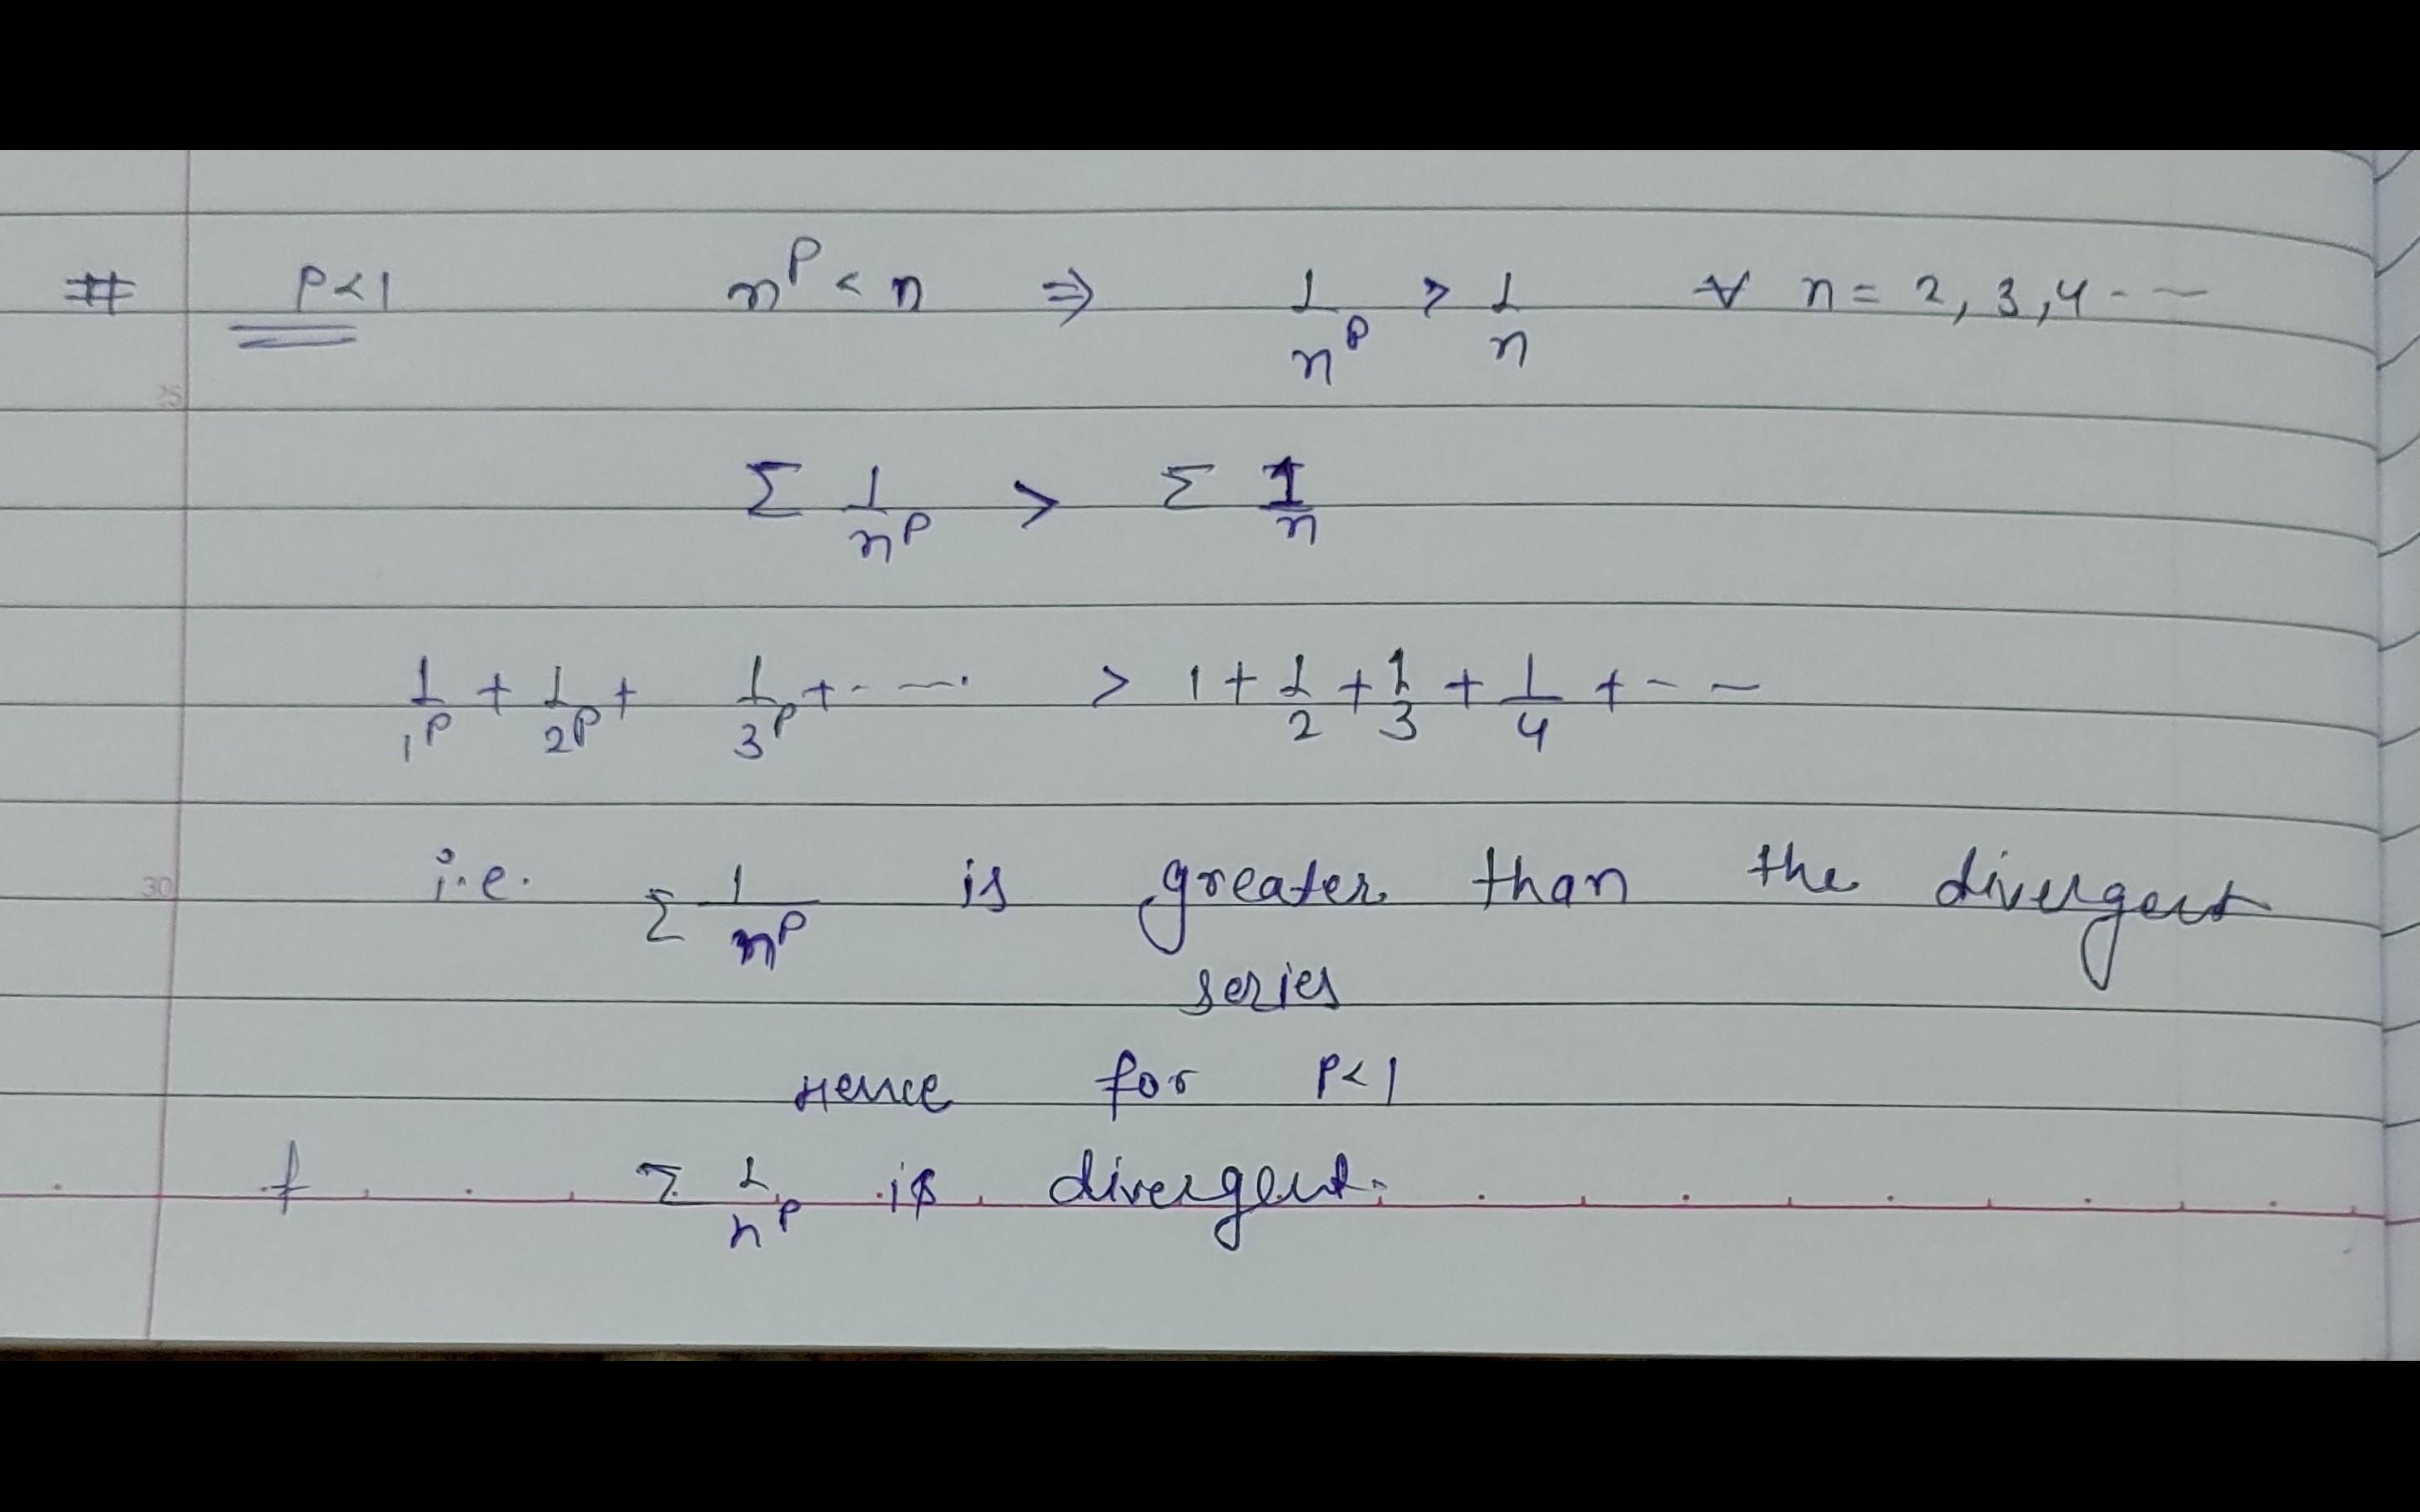 # P<1 n^P < n ⇒ 1/n^P > 1/n ∀ n = 2, 3, 4 - -
25
Σ 1/n^P > Σ 1/n
1/1^P + 1/2^P + 1/3^P + - - - > 1 + 1/2 + 1/3 + 1/4 + - -
30 i.e. Σ 1/n^P is greater than the divergent
series
Hence for P<1
Σ 1/n^P is divergent.